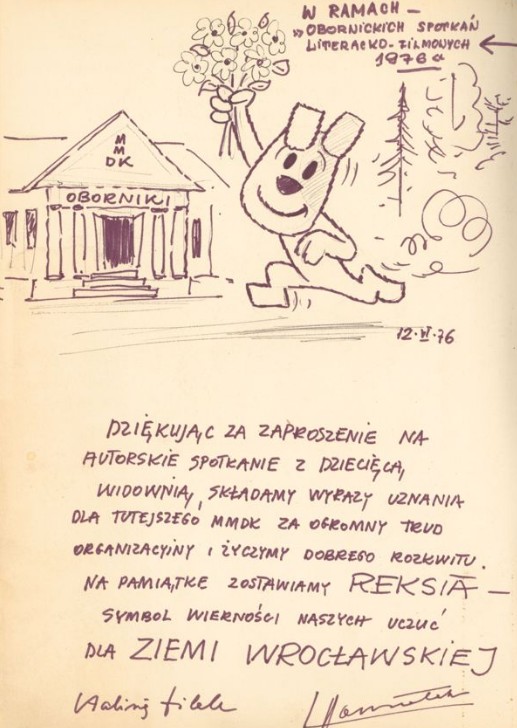 W RAMACH –
„OBORNICKICH SPOTKAŃ
LITERACKO-FILMOWYCH
1976 R
M
M
DK
OBORNIKI
12.VI.76
DZIĘKUJĄC ZA ZAPROSZENIE NA
AUTORSKIE SPOTKANIE Z DZIECIĘCĄ
WIDOWNIĄ, SKŁADAMY WYRAZY UZNANIA
DLA TUTEJSZEGO MMDK ZA OGROMNY TRUD
ORGANIZACYJNY I ŻYCZYMY DOBREGO ROZKWITU.
NA PAMIĄTKĘ ZOSTAWIAMY REKSIA –
SYMBOL WIERNOŚCI NASZYCH UCZUĆ
DLA ZIEMI WROCŁAWSKIEJ
Halina Filek